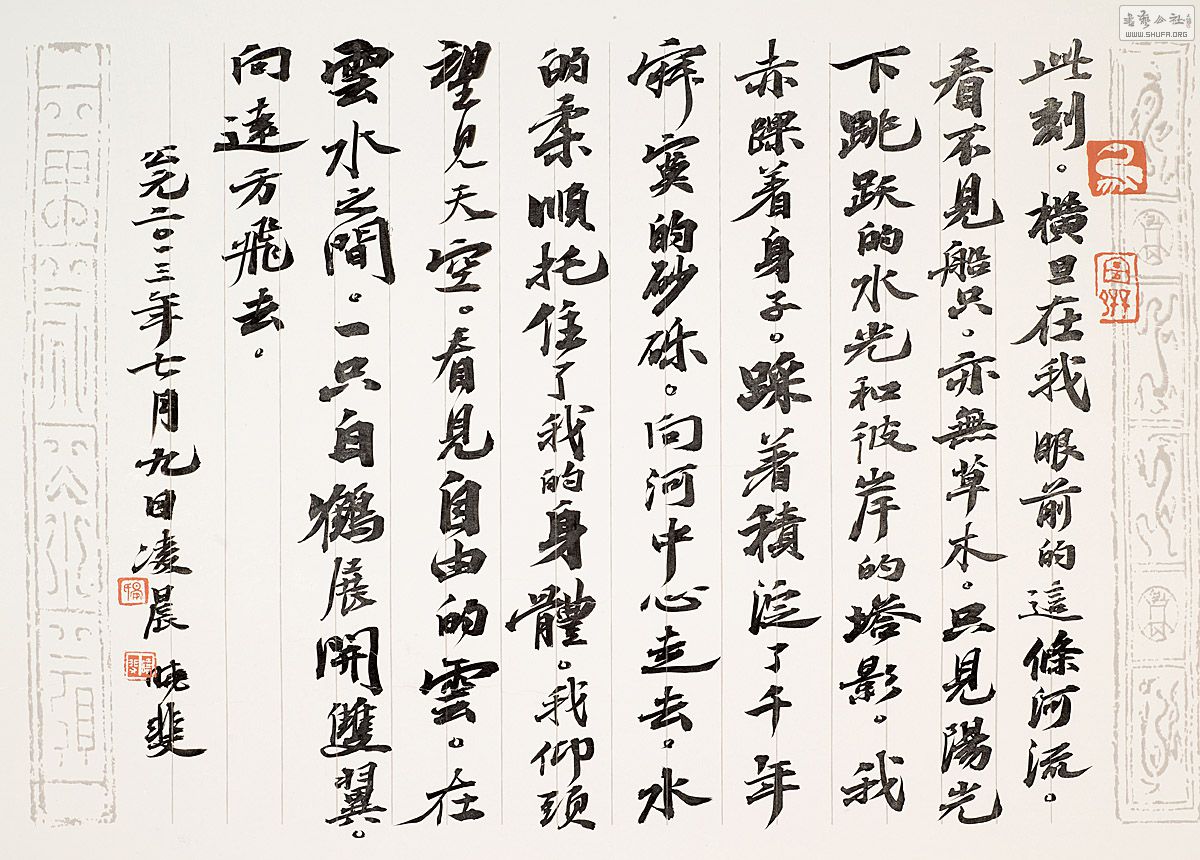 此刻。横旦在我眼前的這條河流。
看不見船只。亦無草木。只見陽光
下跳跃的水光和彼岸的塔影。我
赤踝着身子。踩着積淀了千年
寂寞的砂砾。向河中心走去。水
的柔順托住了我的身體。我仰頭
望見天空。看見自由的雲。在
雲水之間。一只白鶴展開雙翼。
向遠方飛去。
公元二〇一三年七月九日凌晨 曉斐
書藝公社
WWW.SHUFA.ORG